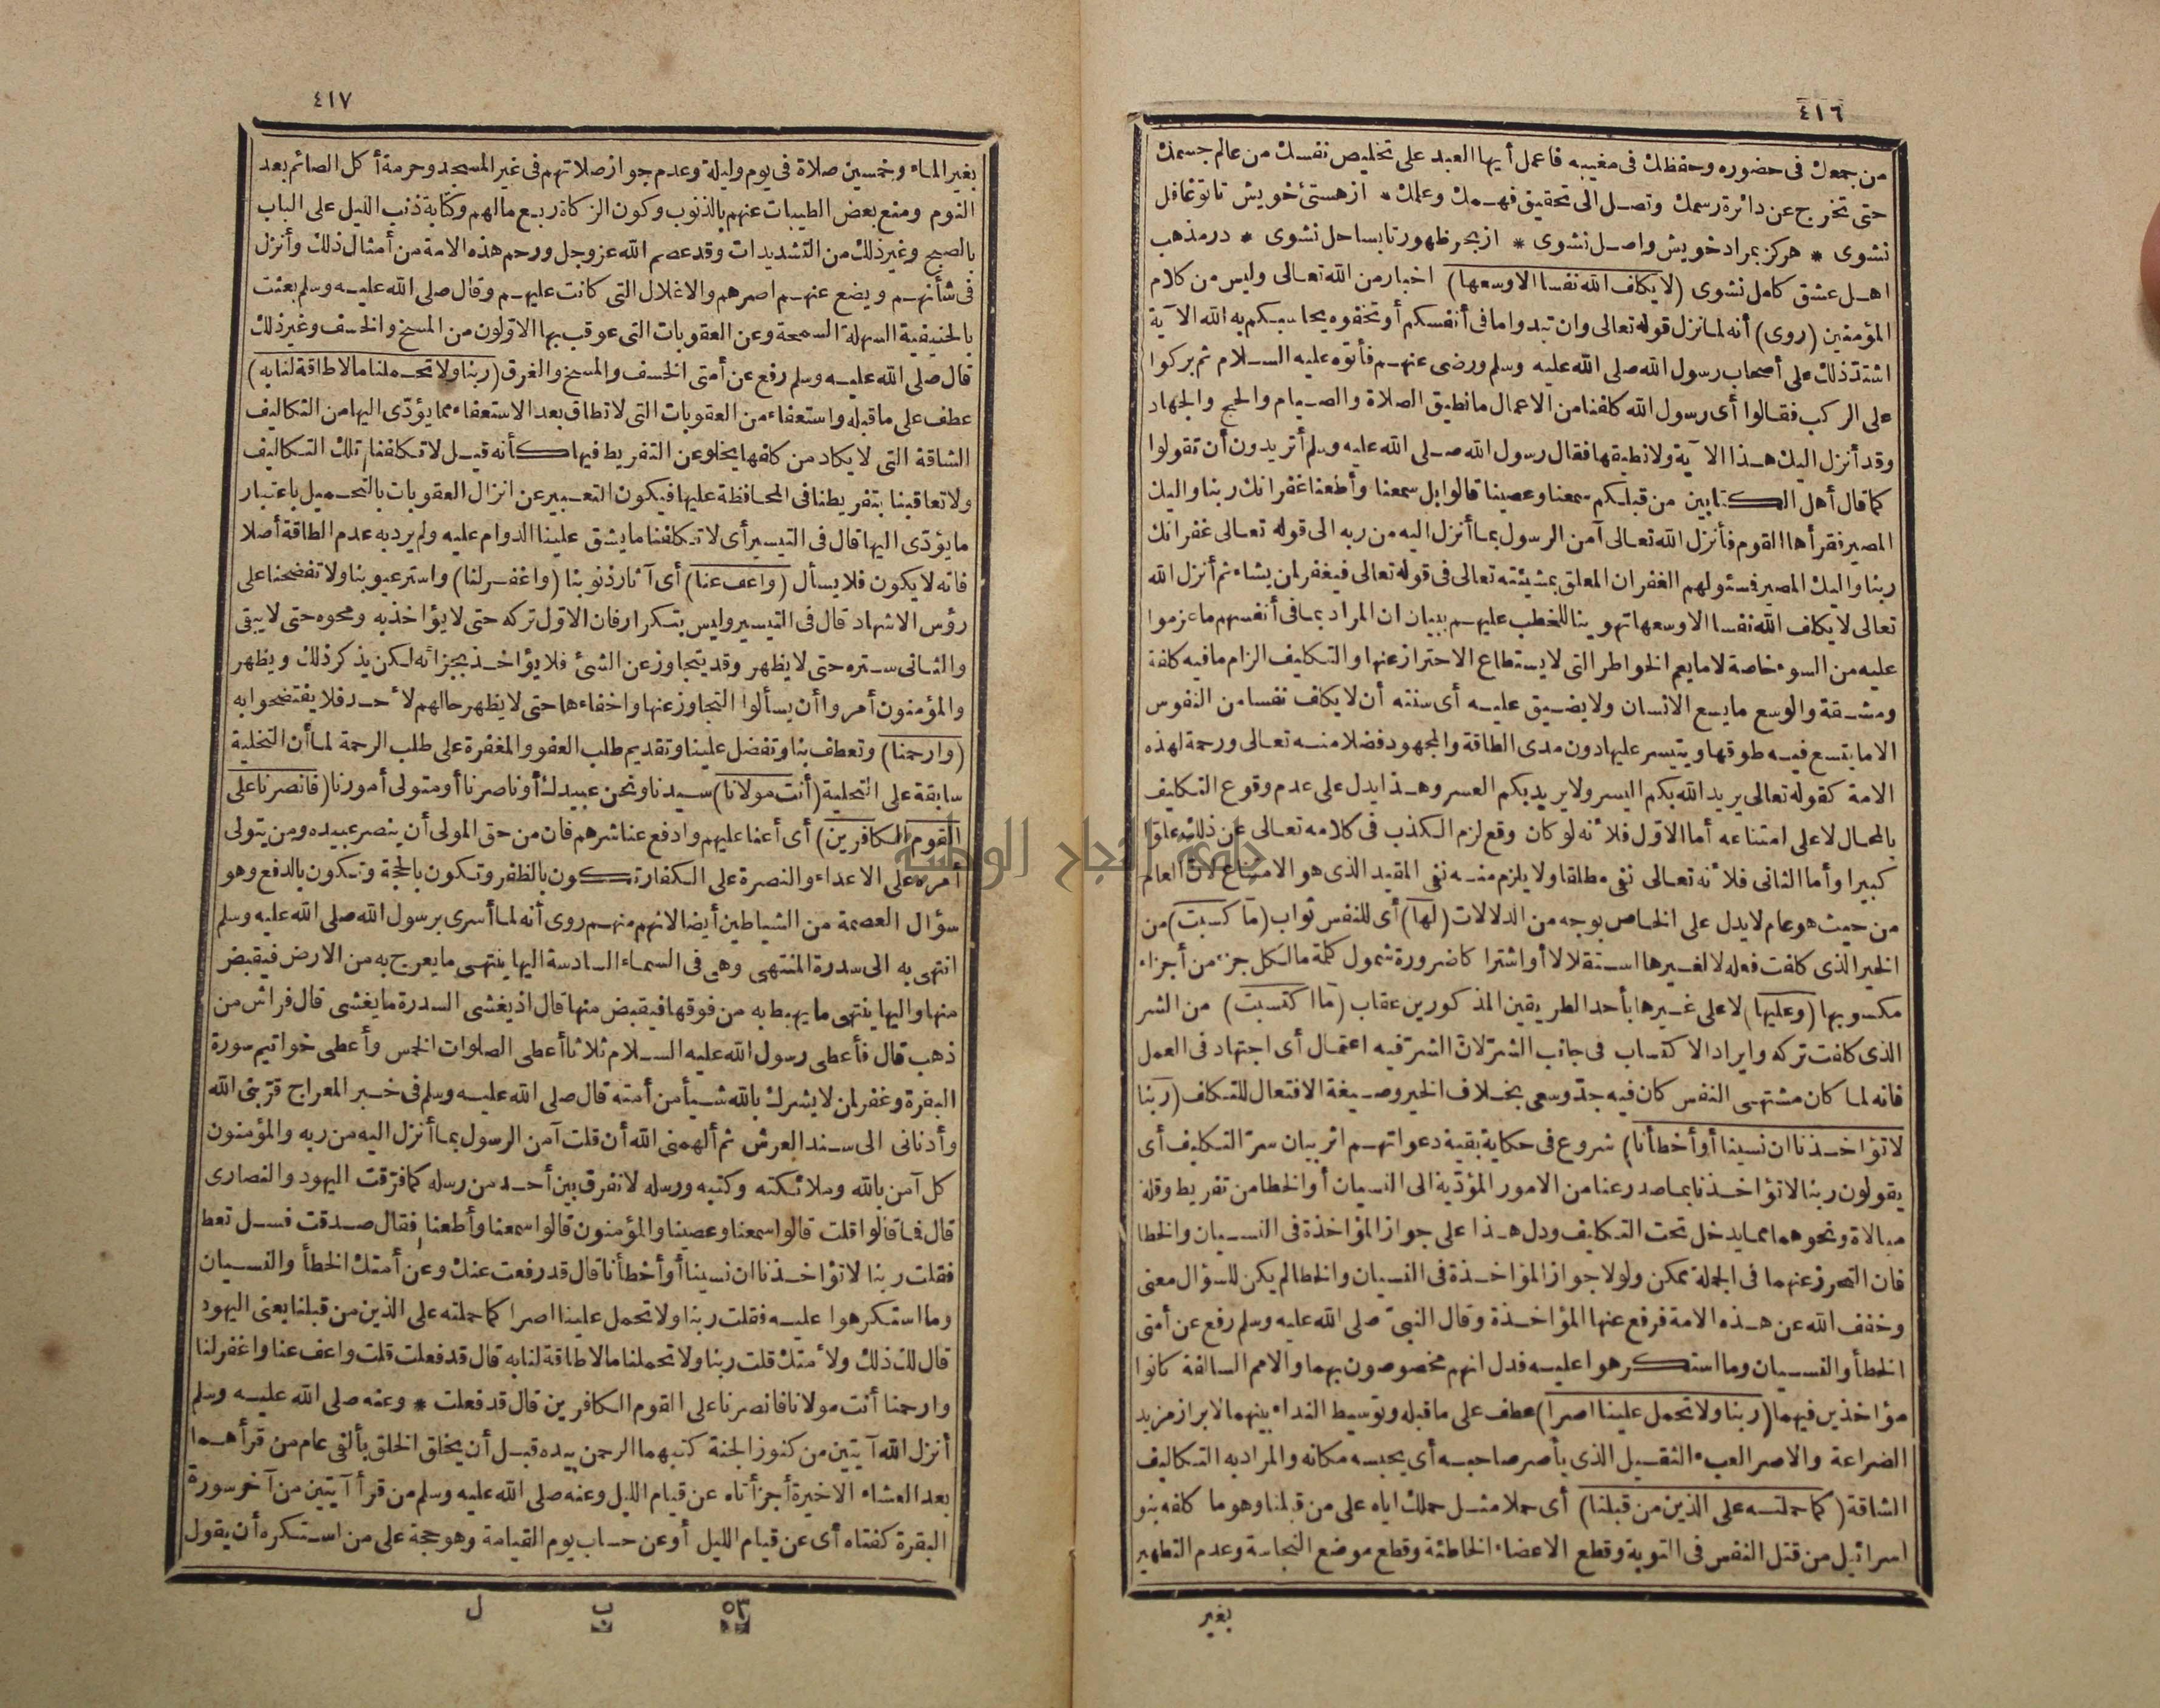 ٤١٦
من جمعك فى حضوره وحفظك فى مغيبه فاعمل أيها العبد على تخليص نفسك من عالم جسمك
حتى تخرج عن دائرة رسمك وتصل الى تحقيق فهمك وعلمك * از هستئ خويش تا تو غافل
نشوى * هركز بمراد خويش واصل نشوى * از بحر ظهور تا بساحل نشوى * در مذهب
اهل عشق كامل نشوى (لا يكلف الله نفسا الا وسعها) اخبار من الله تعالى وليس من كلام
المؤمنين (روى) أنه لما نزل قوله تعالى وان تبدوا ما فى أنفسكم أو تخفوه يحاسبكم به الله الآية
اشتد ذلك على أصحاب رسول الله صلى الله عليه وسلم ورضى عنهم فأتوه عليه السلام ثم بركوا
على الركب فقالوا أى رسول الله كلفنا من الاعمال ما نطيق الصلاة والصيام والحج والجهاد
وقد أنزل اليك هذا الآية ولا نطيقها فقال رسول الله صلى الله عليه وسلم أتريدون أن تقولوا
كما قال أهل الكتابين من قبلكم سمعنا وعصينا قالوا بل سمعنا وأطعنا غفرانك ربنا واليك
المصير فقرأها القوم فأنزل الله تعالى آمن الرسول بما أنزل اليه من ربه الى قوله تعالى غفرانك
ربنا واليك المصير فسئولهم الغفران المعلق بمشيئته تعالى فى قوله تعالى فيغفر لمن يشاء ثم أنزل الله
تعالى لا يكلف الله نفسا الا وسعها تهوينا للخطب عليهم ببيان ان المراد بما فى أنفسهم ما عزموا
عليه من السوء خاصة لا ما يعم الخواطر التى لا يستطاع الاحتراز عنها والتكليف الزام ما فيه كلفة
ومشقة والوسع ما يسع الانسان ولا يضيق عليه أى سنته أن لا يكلف نفسا من النفوس
الا ما يتسع فيه طوقها ويتيسر عليها دون مدى الطاقة والمجهود فضلا منه تعالى ورحمة لهذه
الامة كقوله تعالى يريد الله بكم اليسر ولا يريد بكم العسر وهذا يدل على عدم وقوع التكليف
بالمحال لا على امتناعه أما الاول فلأنه لو كان وقع لزم الكذب فى كلامه تعالى عن ذلك علوا
كبيرا وأما الثانى فلأنه تعالى نفى مطلقا ولا يلزم منه نفى المقيد الذى هو الامتناع لان العالم
من حيث هو عام لا يدل على الخاص بوجه من الدلالات (لها) أى للنفس ثواب (ما كسبت) من
الخير الذى كلفت فعله لا لغيرها استقلالا أو اشتراكا ضرورة شمول كلمة ما لكل جزء من أجزاء
مكسوبها (وعليها) لا على غيرها بأحد الطريقين المذكورين عقاب (ما اكتسبت) من الشر
الذى كلفت تركه وايراد الاكتساب فى جانب الشر لان الشر فيه اعتمال أى اجتهاد فى العمل
فانه لما كان مشتهى النفس كان فيه جد وسعى بخلاف الخير وصيغة الافتعال للتكلف (ربنا
لا تؤاخذنا ان نسينا أو أخطأنا) شروع فى حكاية بقية دعواتهم اثر بيان سر التكليف أى
يقولون ربنا لا تؤاخذنا بما صدر عنا من الامور المؤدية الى النسيان أو الخطا من تفريط وقلة
مبالاة ونحوهما مما يدخل تحت التكليف ودل هذا على جواز المؤاخذة فى النسيان والخطا
فان التحرز عنهما فى الجملة ممكن ولولا جواز المؤاخذة فى النسيان والخطا لم يكن للسؤال معنى
وخفف الله عن هذه الامة فرفع عنها المؤاخذة وقال النبى صلى الله عليه وسلم رفع عن أمتى
الخطأ والنسيان وما استكرهوا عليه فدل انهم مخصوصون بهما والامم السالفة كانوا
مؤاخذين فيهما (ربنا ولا تحمل علينا اصرا) عطف على ما قبله وتوسيط النداء بينهما لابراز مزيد
الضراعة والاصر العبء الثقيل الذى يأصر صاحبه أى يحبسه مكانه والمراد به التكاليف
الشاقة (كما حملته على الذين من قبلنا) أى حملا مثل حملك اياه على من قبلنا وهو ما كلفه بنو
اسرائيل من قتل النفس فى التوبة وقطع الاعضاء الخاطئة وقطع موضع النجاسة وعدم التطهير
بغير
٤١٧
بغير الماء وخمسين صلاة فى يوم وليلة وعدم جواز صلاتهم فى غير المسجد وحرمة أكل الصائم بعد
النوم ومنع بعض الطيبات عنهم بالذنوب وكون الزكاة ربع مالهم وكتابة ذنب الليل على الباب
بالصبح وغير ذلك من التشديدات وقد عصم الله عز وجل ورحم هذه الامة من أمثال ذلك وأنزل
فى شأنهم ويضع عنهم اصرهم والاغلال التى كانت عليهم وقال صلى الله عليه وسلم بعثت
بالحنيفية السهلة السمحة وعن العقوبات التى عوقب بها الاولون من المسخ والخسف وغير ذلك
قال صلى الله عليه وسلم رفع عن أمتى الخسف والمسخ والغرق (ربنا ولا تحملنا ما لا طاقة لنا به)
عطف على ما قبله واستعفاء من العقوبات التى لا تطاق بعد الاستعفاء مما يؤدى اليها من التكاليف
الشاقة التى لا يكاد من كلفها يخلو عن التفريط فيها كأنه قيل لا تكلفنا تلك التكاليف
ولا تعاقبنا بتفريطنا فى المحافظة عليها فيكون التعبير عن انزال العقوبات بالتحميل باعتبار
ما يؤدى اليها قال فى التيسير أى لا تكلفنا ما يشق علينا الدوام عليه ولم يرد به عدم الطاقة أصلا
فانه لا يكون فلا يسأل (واعف عنا) أى آثار ذنوبنا (واغفر لنا) واستر عيوبنا ولا تفضحنا على
رؤس الاشهاد قال فى التيسير وليس بتكرار فان الاول تركه حتى لا يؤاخذ به ومحوه حتى لا يبقى
والثانى ستره حتى لا يظهر وقد يتجاوز عن الشئ فلا يؤاخذ بجزائه لكن يذكر ذلك ويظهر
والمؤمنون أمروا أن يسألوا التجاوز عنها واخفاءها حتى لا يظهر حالهم لأحد فلا يفتضحوا به
(وارحمنا) وتعطف بنا وتفضل علينا وتقديم طلب العفو والمغفرة على طلب الرحمة لما أن التخلية
سابقة على التحلية (أنت مولانا) سيدنا ونحن عبيدك أو ناصرنا أو متولى أمورنا (فانصرنا على
القوم الكافرين) أى أعنا عليهم وادفع عنا شرهم فان من حق المولى أن ينصر عبيده ومن يتولى
أمره على الاعداء والنصرة على الكفار تكون بالظفر وتكون بالحجة وتكون بالدفع وهو
سؤال العصمة من الشياطين أيضا لانهم منهم روى أنه لما أسرى برسول الله صلى الله عليه وسلم
انتهى به الى سدرة المنتهى وهى فى السماء السادسة اليها ينتهى ما يعرج به من الارض فيقبض
منها واليها ينتهى ما يهبط به من فوقها فيقبض منها قال اذ يغشى السدرة ما يغشى قال فراش من
ذهب قال فأعطى رسول الله عليه السلام ثلاثا أعطى الصلوات الخمس وأعطى خواتيم سورة
البقرة وغفر لمن لا يشرك بالله شيأ من أمته قال صلى الله عليه وسلم فى خبر المعراج قربنى الله
وأدنانى الى سند العرش ثم ألهمنى الله أن قلت آمن الرسول بما أنزل اليه من ربه والمؤمنون
كل آمن بالله وملائكته وكتبه ورسله لا نفرق بين أحد من رسله كما فرقت اليهود والنصارى
قال فما قالوا قلت قالوا سمعنا وعصينا والمؤمنون قالوا سمعنا وأطعنا فقال صدقت فسل تعط
فقلت ربنا لا تؤاخذنا ان نسينا أو أخطأنا قال قد رفعت عنك وعن أمتك الخطأ والنسيان
وما استكرهوا عليه فقلت ربنا ولا تحمل علينا اصرا كما حملته على الذين من قبلنا يعنى اليهود
قال لك ذلك ولأمتك قلت ربنا ولا تحملنا ما لا طاقة لنا به قال قد فعلت قلت واعف عنا واغفر لنا
وارحمنا أنت مولانا فانصرنا على القوم الكافرين قال قد فعلت * وعنه صلى الله عليه وسلم
أنزل الله آيتين من كنوز الجنة كتبهما الرحمن بيده قبل أن يخلق الخلق بألفى عام من قرأهما
بعد العشاء الاخيرة أجزأتاه عن قيام الليل وعنه صلى الله عليه وسلم من قرأ آيتين من آخر سورة
البقرة كفتاه أى عن قيام الليل أو عن حساب يوم القيامة وهو حجة على من استكره أن يقول
٥٣ ب ل
جامعة النجاح الوطنية